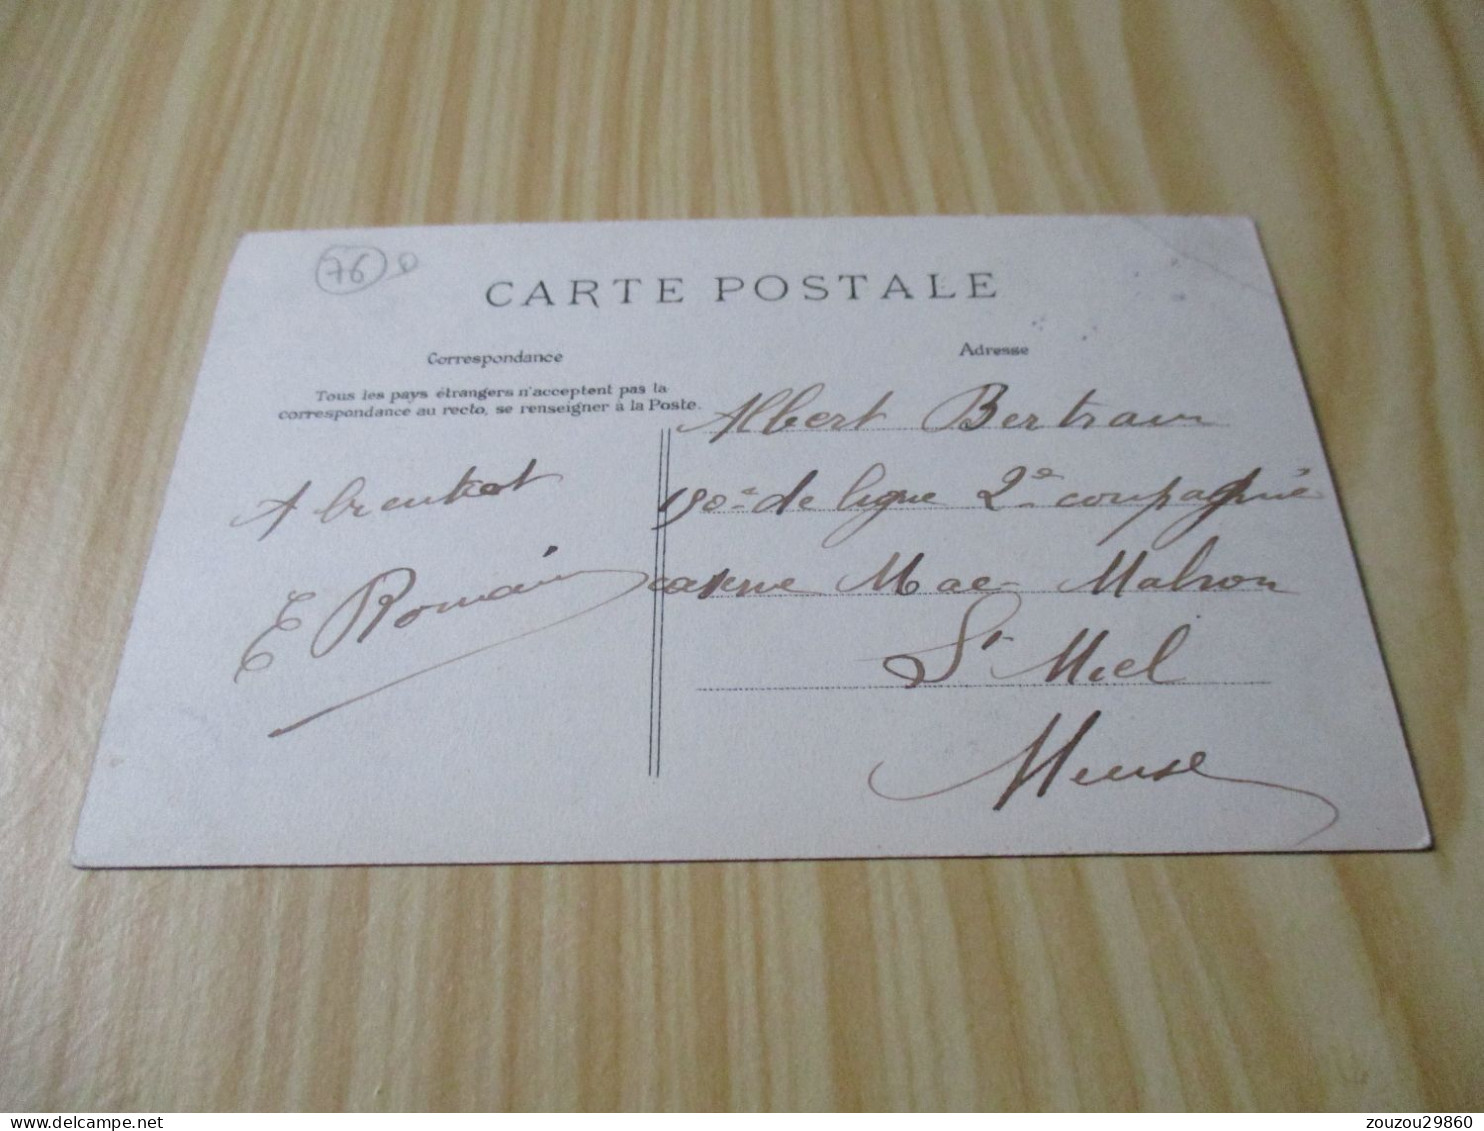 76
CARTE POSTALE
Correspondance
Adresse
Tous les pays étrangers n'acceptent pas la
correspondance au recto, se renseigner à la Poste.
A bientot
E Romain
Albert Bertram
150e de ligne 2e compagnie
caserne Mac-Mahon
St Miel
Meuse
zouzou29860